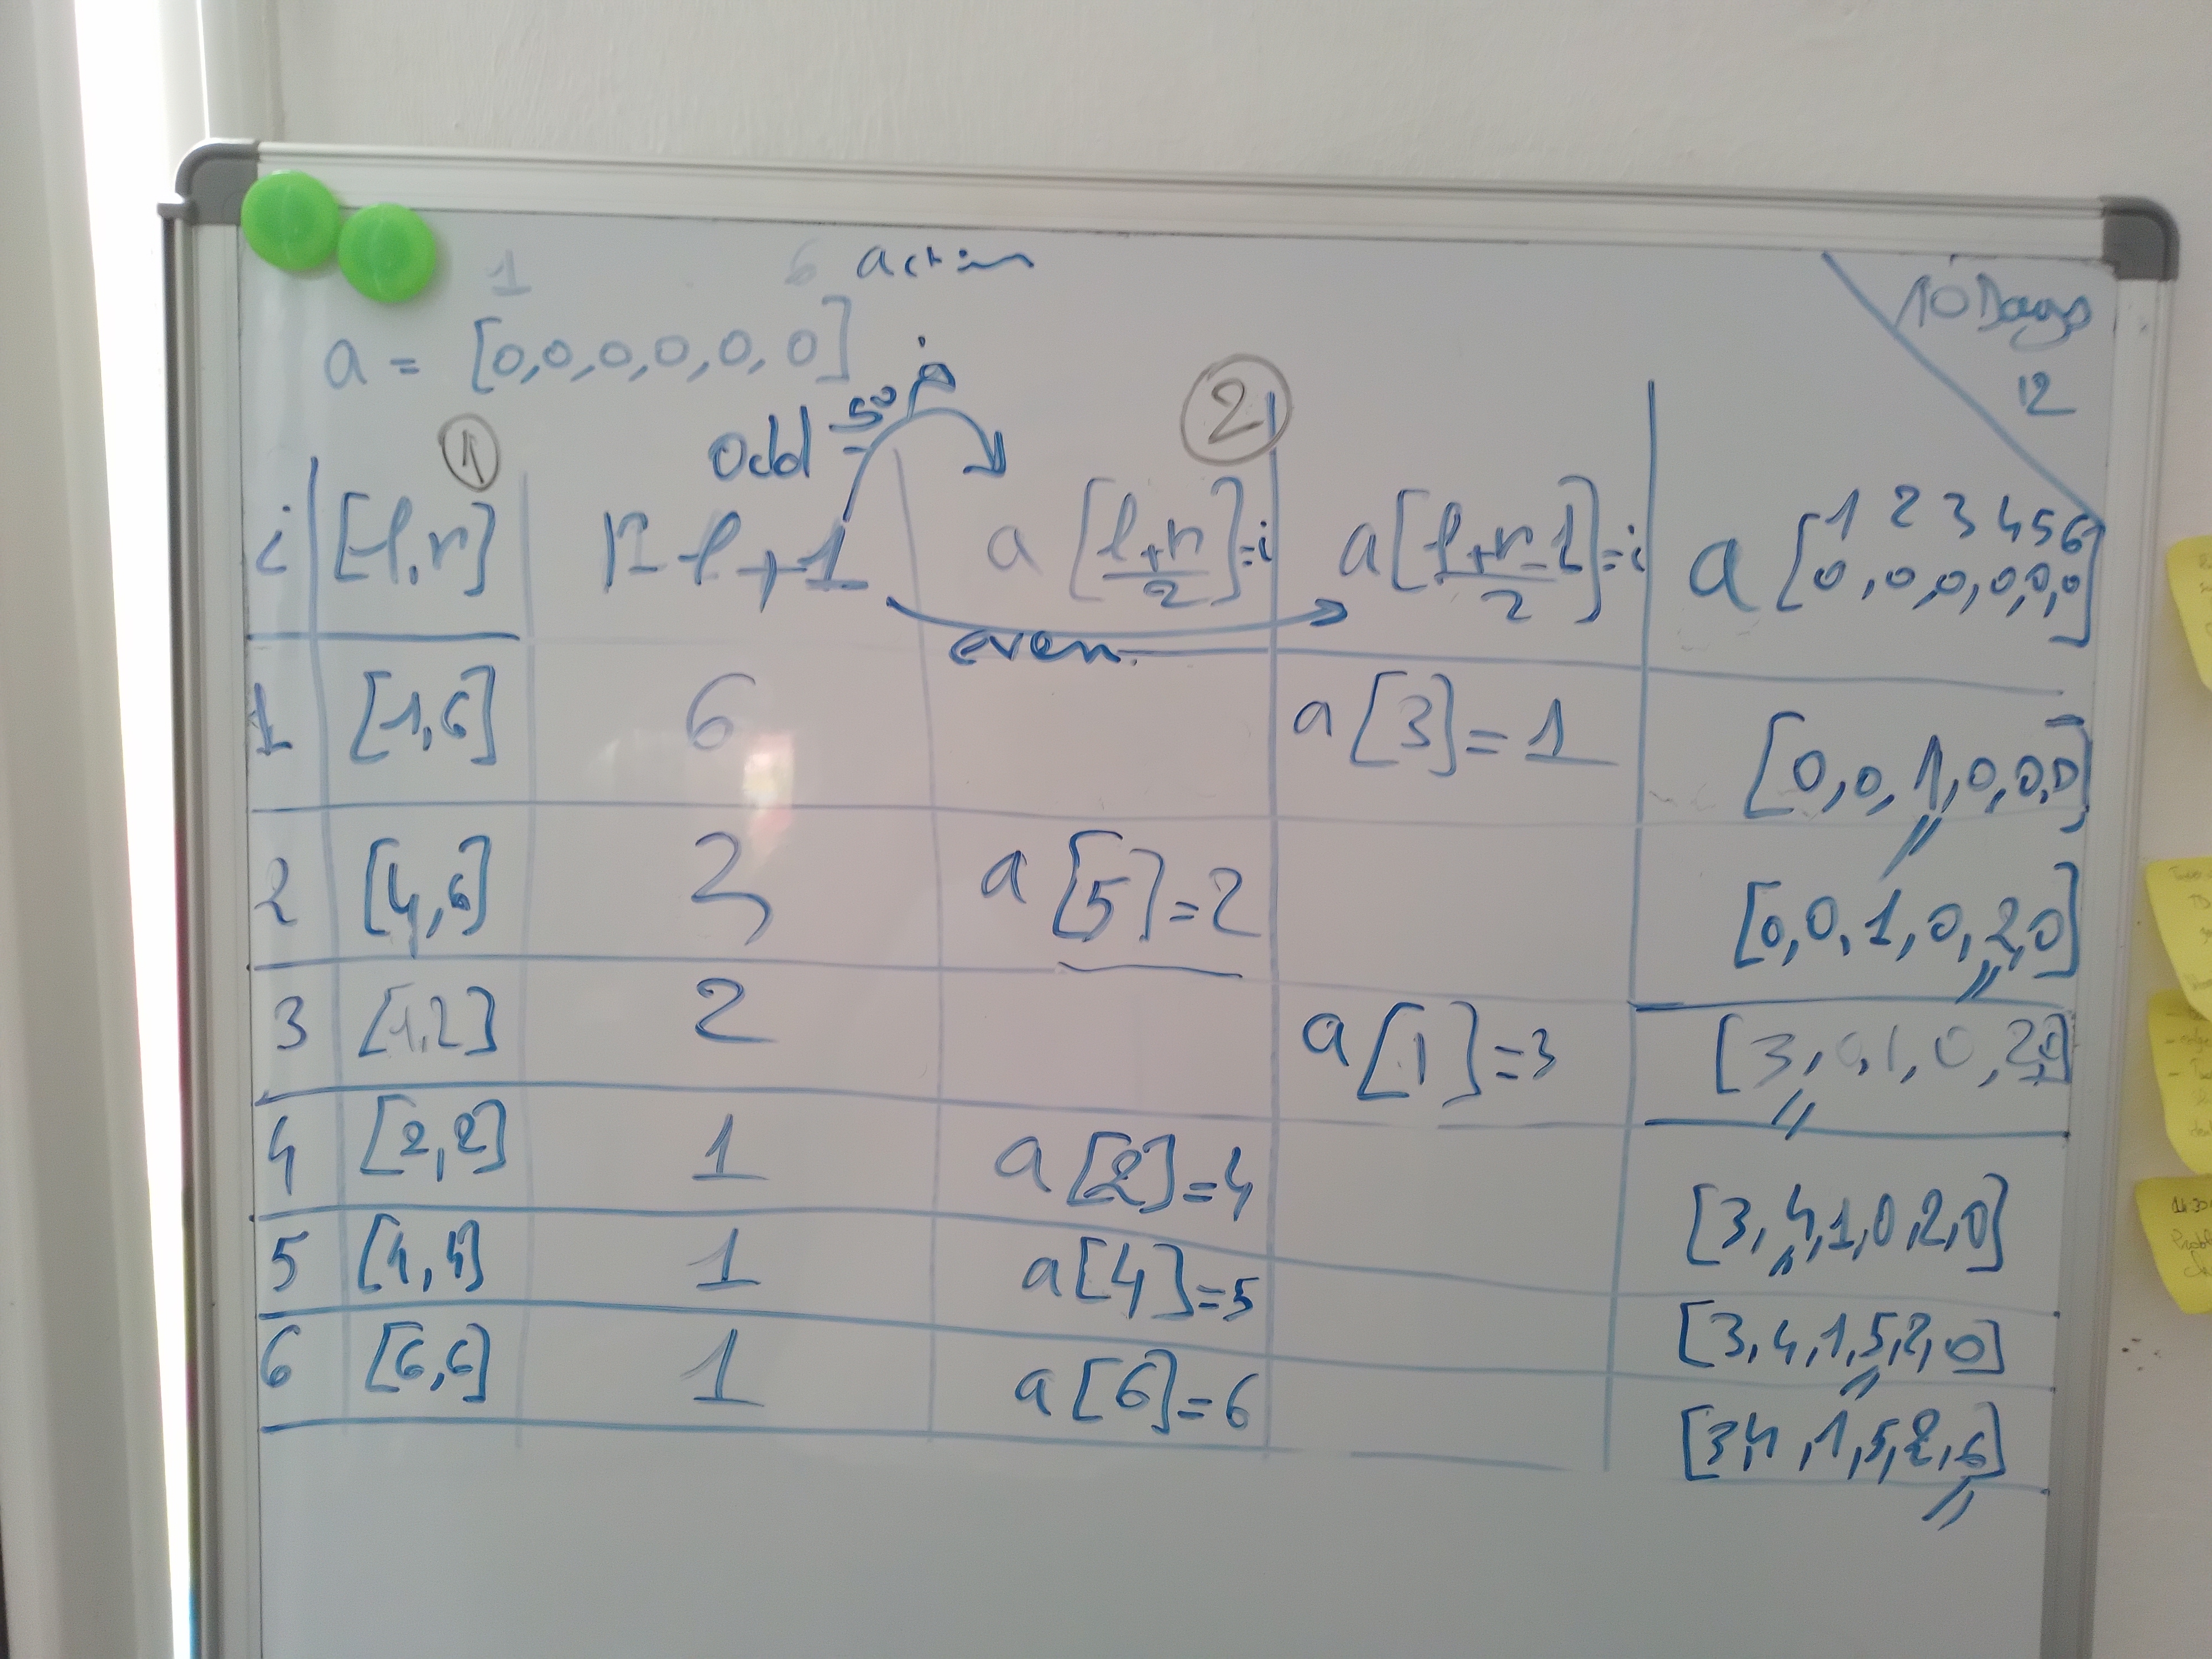 1 6 action
a = [0,0,0,0,0,0]
10 Days
12
odd
1 2
i [l,r] r-l+1 a[l+r/2]=i a[l+r-1/2]=i a [0,0,0,0,0,0]
1 2 3 4 5 6
even
1 [1,6] 6 a[3]=1 [0,0,1,0,0,0]
2 [4,6] 3 a[5]=2 [0,0,1,0,2,0]
3 [1,2] 2 a[1]=3 [3,0,1,0,2,0]
4 [2,2] 1 a[2]=4 [3,4,1,0,2,0]
5 [4,4] 1 a[4]=5 [3,4,1,5,2,0]
6 [6,6] 1 a[6]=6 [3,4,1,5,2,6]